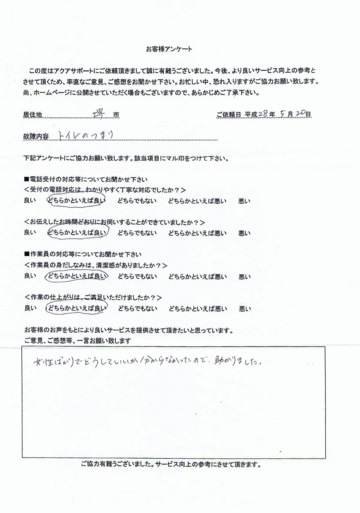 お客様アンケート
この度はアクアサポートにご依頼頂きまして誠に有難うございました。今後、より良いサービス向上の参考と
させて頂くため、率直なご意見、ご感想をお聞かせ下さい。お忙しい中、恐れ入りますがご協力お願い致します。
尚、ホームページに公開させていただく場合もございますので、あらかじめご了承下さい。
居住地 堺 市 ご依頼日 平成28年 5月20日
故障内容 トイレのつまり
下記アンケートにご協力お願い致します。該当項目にマル印をつけて下さい。
■電話受付の対応等についてお聞かせ下さい
<受付の電話対応は、わかりやすく丁寧な対応でしたか?>
良い どちらかといえば良い どちらでもない どちらかといえば悪い 悪い
<お伝えしたお時間どおりにお伺いすることができていましたか?>
良い どちらかといえば良い どちらでもない どちらかといえば悪い 悪い
■作業員の対応等についてお聞かせ下さい
<作業員の身だしなみは、清潔感がありましたか?>
良い どちらかといえば良い どちらでもない どちらかといえば悪い 悪い
<作業の仕上がりは、ご満足いただけましたか?>
良い どちらかといえば良い どちらでもない どちらかといえば悪い 悪い
お客様のお声をもとにより良いサービスを提供させて頂きたいと思っています。
ご意見、ご感想等、一言お願い致します
女性ばかりでどうしていいか分からなかったので、助かりました。
ご協力有難うございました。サービス向上の参考にさせて頂きます。